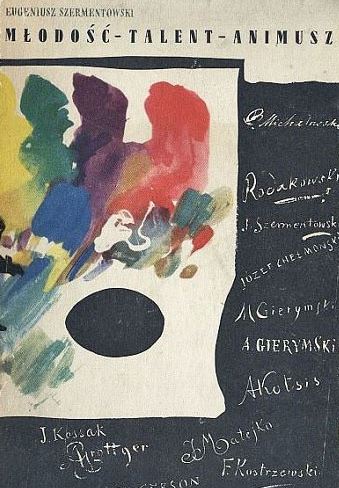 EUGENIUSZ SZERMENTOWSKI
MŁODOŚĆ-TALENT-ANIMUSZ
P. Michałowski
Rodakowski
J. Szermentowski
JÓZEF CHEŁMOŃSKI
M Gierymski
A. GIERYMSKI
A Kotsis
J. Kossak
AGrottger
J Matejko
F. Kostrzewski
GERSON